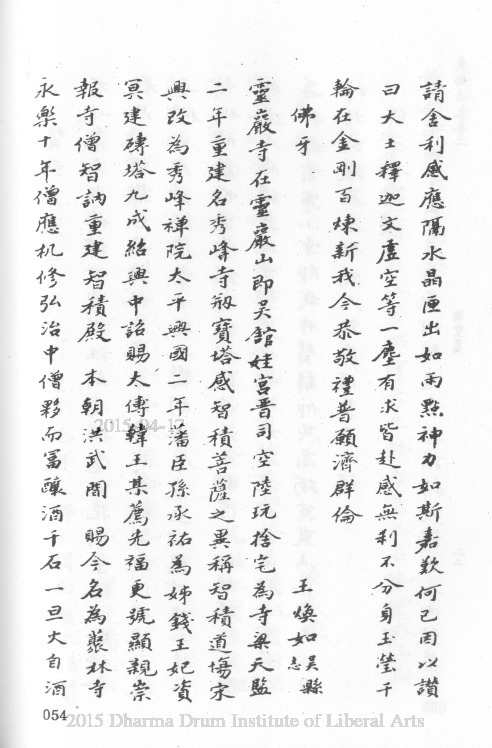 請舍利感應隔水晶匣出如雨點神力如斯嘉歎何已因以讃
曰大士釋迦文虛空等一塵有求皆赴感無刹不分身玉瑩千
輪在金剛百煉新我今恭敬禮普願濟群倫
佛牙 王煥如吳縣志
靈巖寺在靈巖山即吳舘娃宮晋司空陸玩捨宅為寺梁天監
二年重建名秀峰寺剏寶塔感智積菩薩之異稱智積道塲宋
興改為秀峰禅院太平興國二年潘臣孫承祐為姊錢王妃資
冥建磚塔九成紹興中詔賜太傳韓王某薦先福更號顯親崇
報寺僧智訥重建智積殿本朝洪武間 賜今名為叢林寺
永樂十年僧應机修弘治中僧夥而冨釀酒千石一旦火自酒
054
2015-04-17
2015 Dharma Drum Institute of Liberal Arts